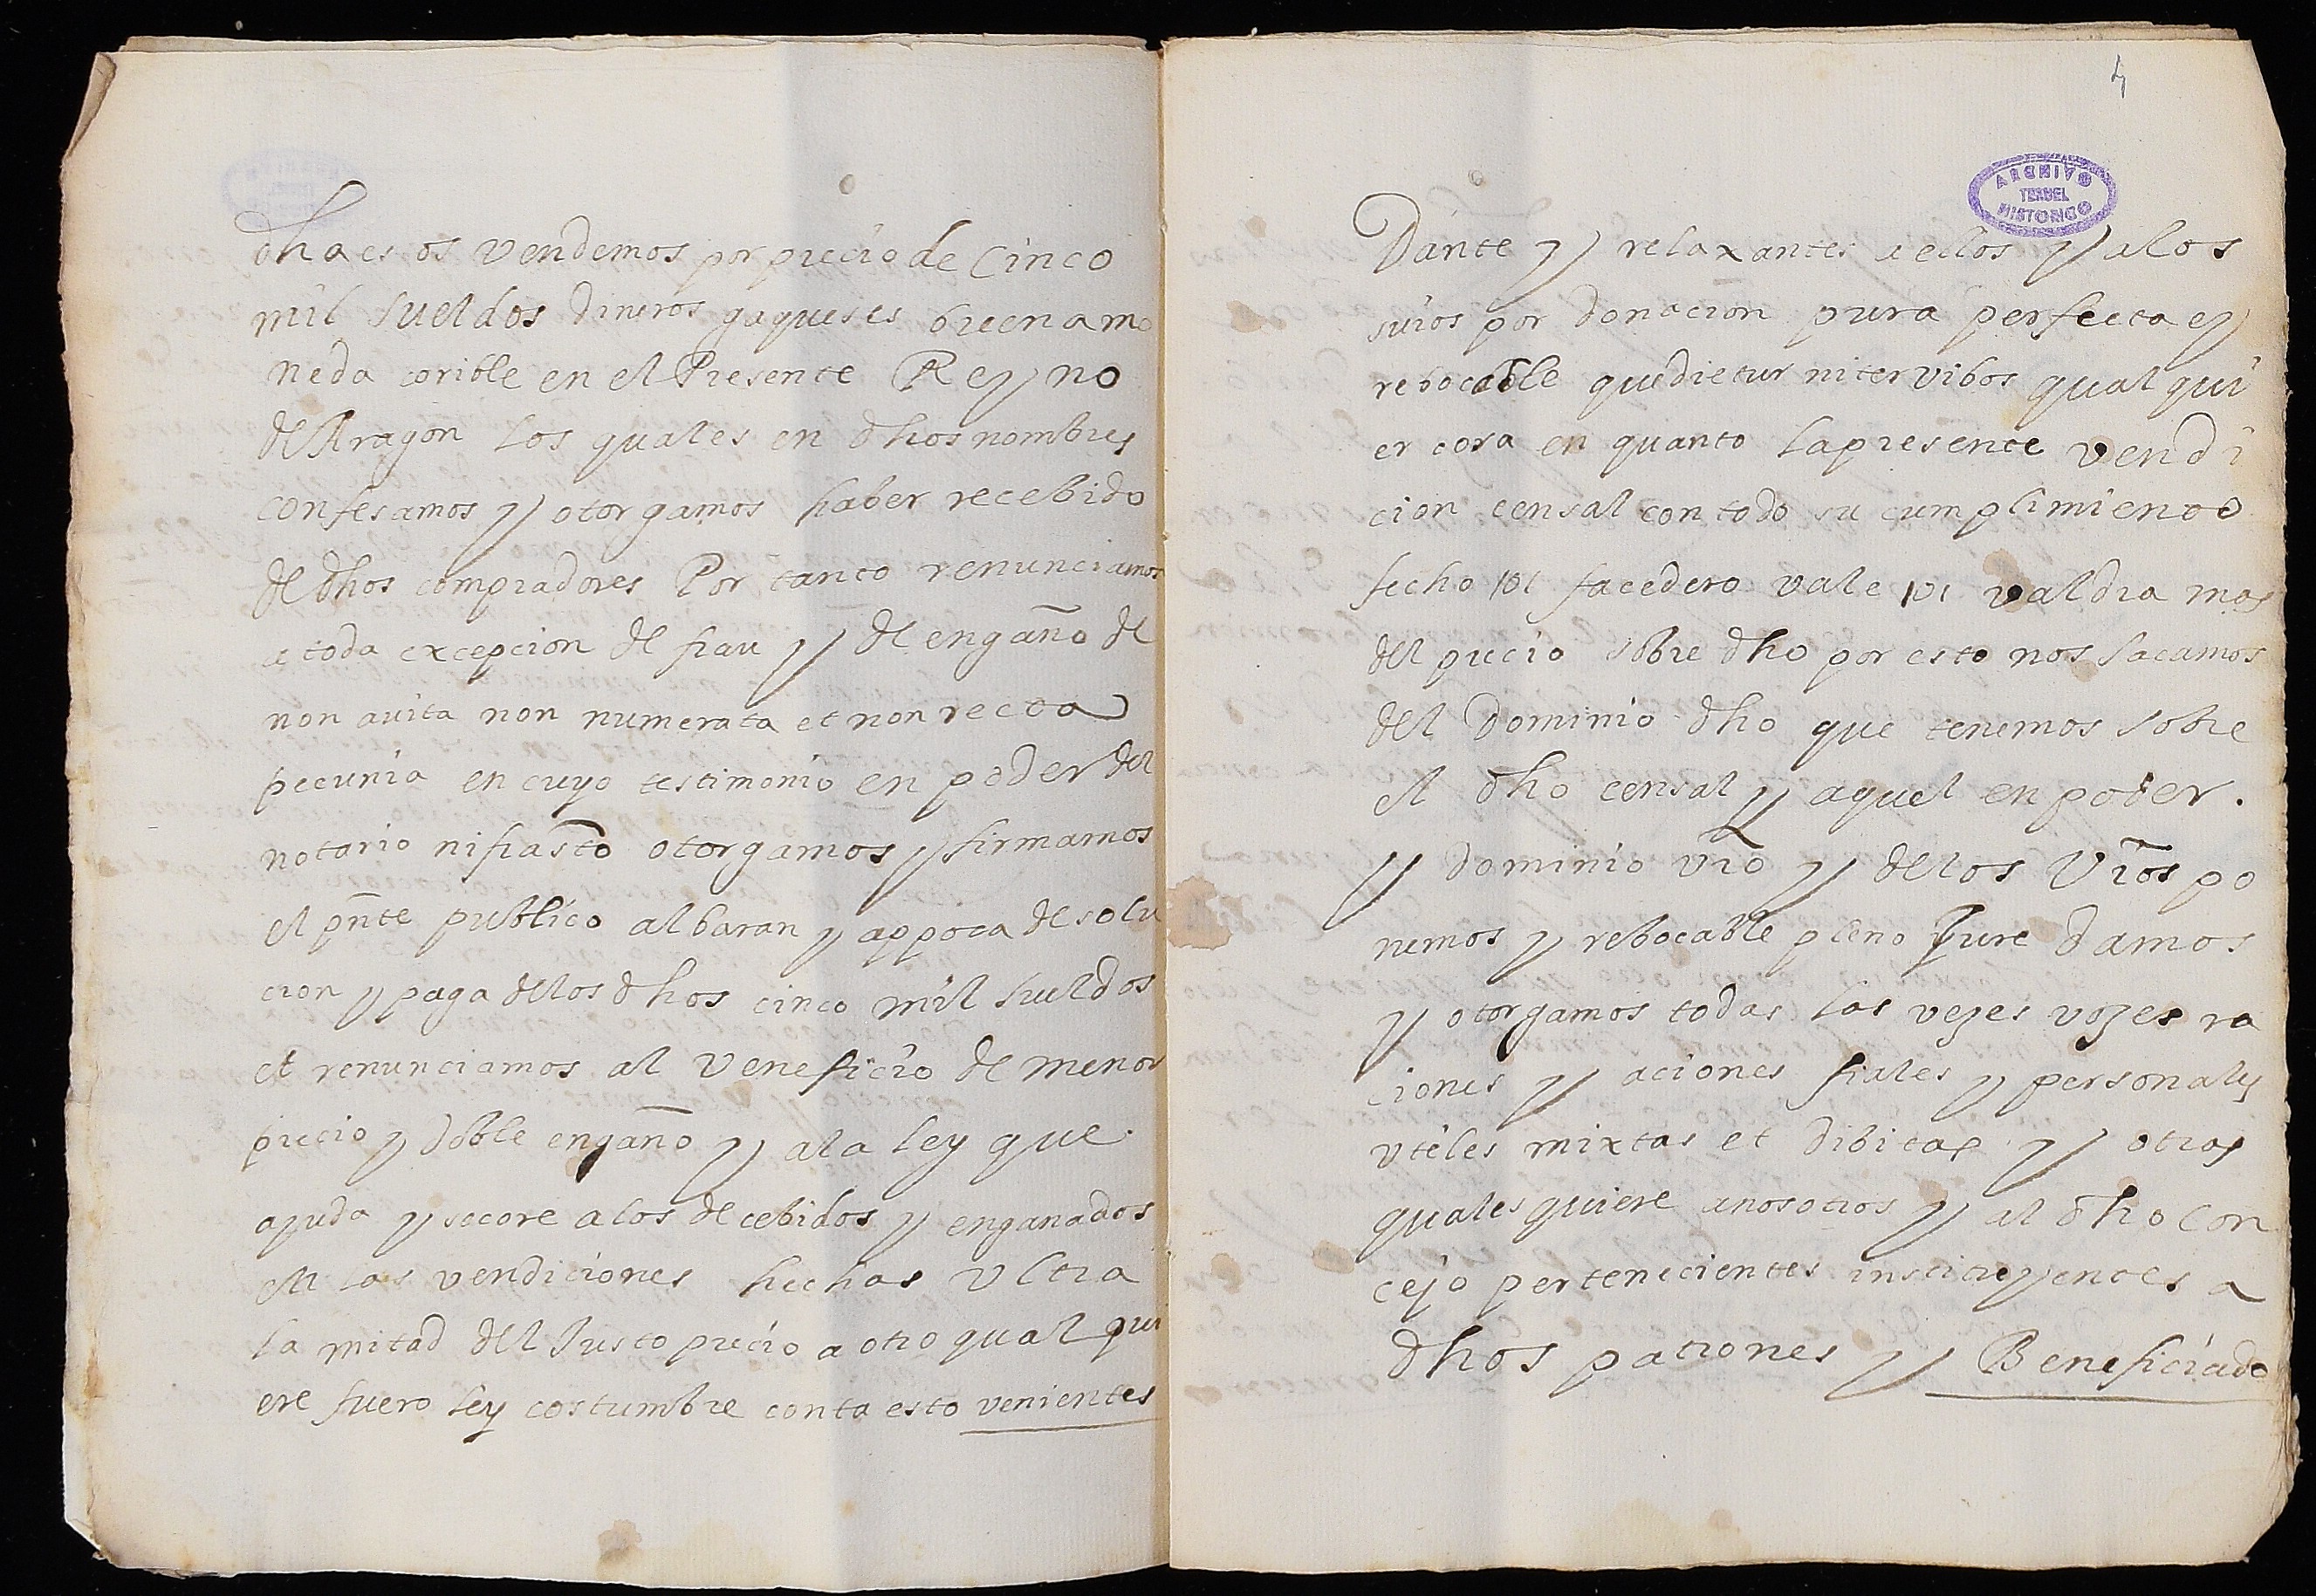 dha es os vendemos por precio de Cinco
mil sueldos dineros gaqueses buena mo
neda corible en el Presente Reyno
de Aragon los quales en dhos nombres
confesamos y otorgamos haber recebido
de dhos compradores Por tanto renunciamos
a toda excepcion de frau y de engaño de
non auita non numerata et non recta
pecunia en cuyo testimonio en poder del
notario nifiasto otorgamos y firmamos
el pnte publico albaran y appoca de solu
cion y paga de los dhos cinco mil sueldos
et renunciamos al veneficio de menor
precio y doble engaño y a la ley que
ayuda y socore a los decebidos y enganados
en las vendiciones hechas ultra
la mitad del Justo precio a otro qual qui
ere fuero ley costumbre conta esto venientes
4
ARCHIVO
TERUEL
HISTORICO
Dante y relaxantes a ellos y a los
suios por donacion pura perfecta ey
rebocable quedietur niter vibos qual qui
er cosa en quanto la presente vendi
cion censal con todo su cumplimiento
fecho o facedero vale o valdra mas
del precio sobre dho por esto nos sacamos
del Dominio dho que tenemos sobre
el dho censal y aquel en poder.
y dominio vro y de los Vros po
nemos y rebocable pleno Jure damos
y otorgamos todas las vezes vozes ra
ciones y aciones riales y personales
utiles mixtas et dibitas y otras
quales quiere a nosotros y al dho con
cejo pertenecientes instituyentes a
dhos patrones y Beneficiado